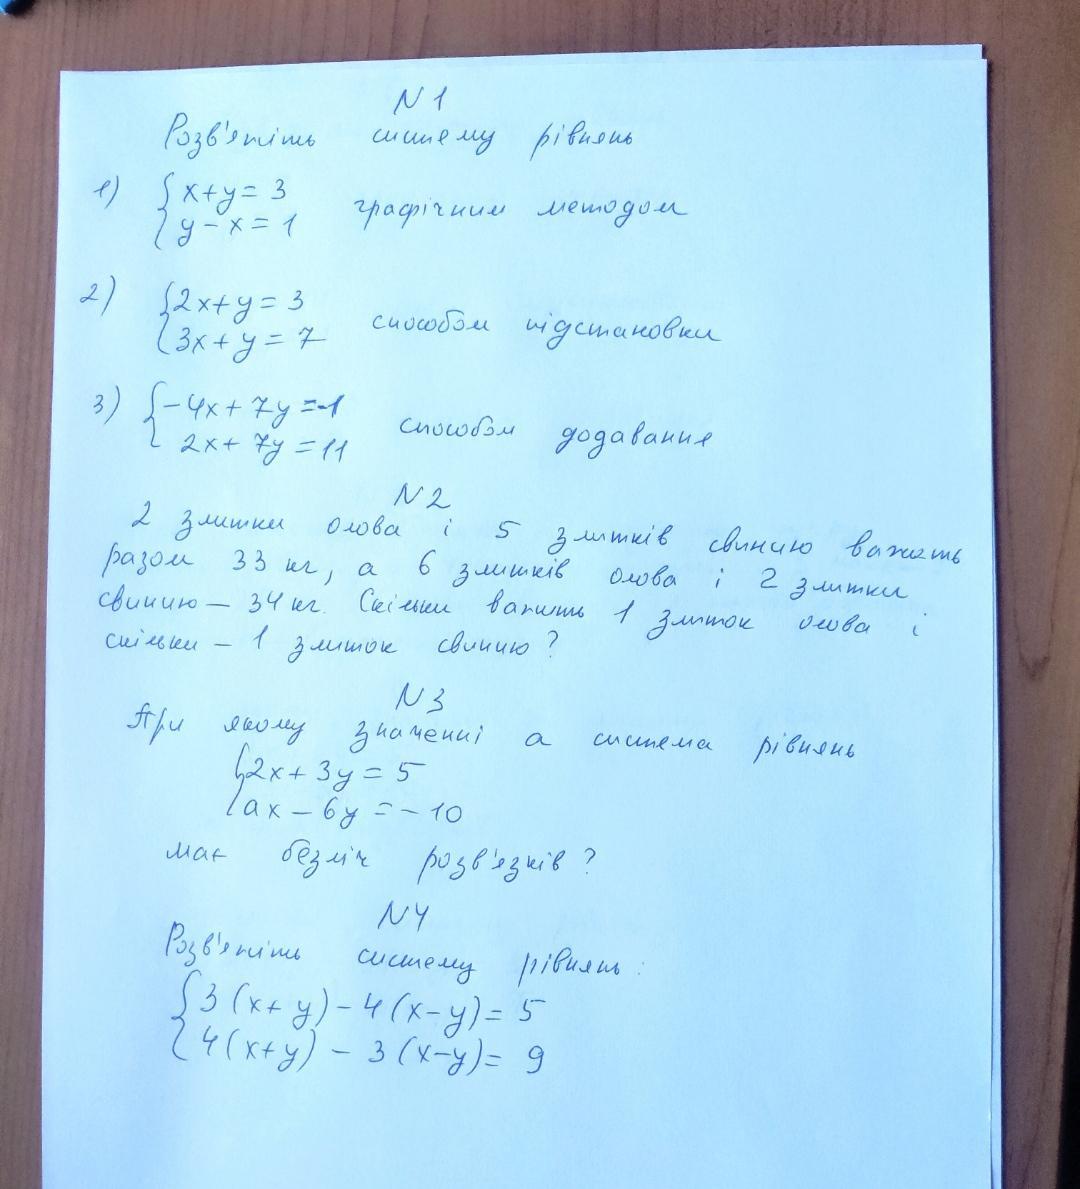 N1
Розв'яжіть систему рівнянь
1) { x+y = 3
y - x = 1 графічним методом
2) { 2x+y = 3
3x+y = 7 способом підстановки
3) { -4x + 7y = -1
2x + 7y = 11 способом додавання
N2
2 злитки олова і 5 злитків свинцю важать
разом 33 кг, а 6 злитків олова і 2 злитки
свинцю - 34 кг. Скільки важить 1 злиток олова і
скільки - 1 злиток свинцю?
N3
При якому значенні а система рівнянь
{ 2x + 3y = 5
ax - 6y = -10
має безліч розв'язків?
N4
Розв'яжіть систему рівнянь:
{ 3(x+y) - 4(x-y) = 5
4(x+y) - 3(x-y) = 9